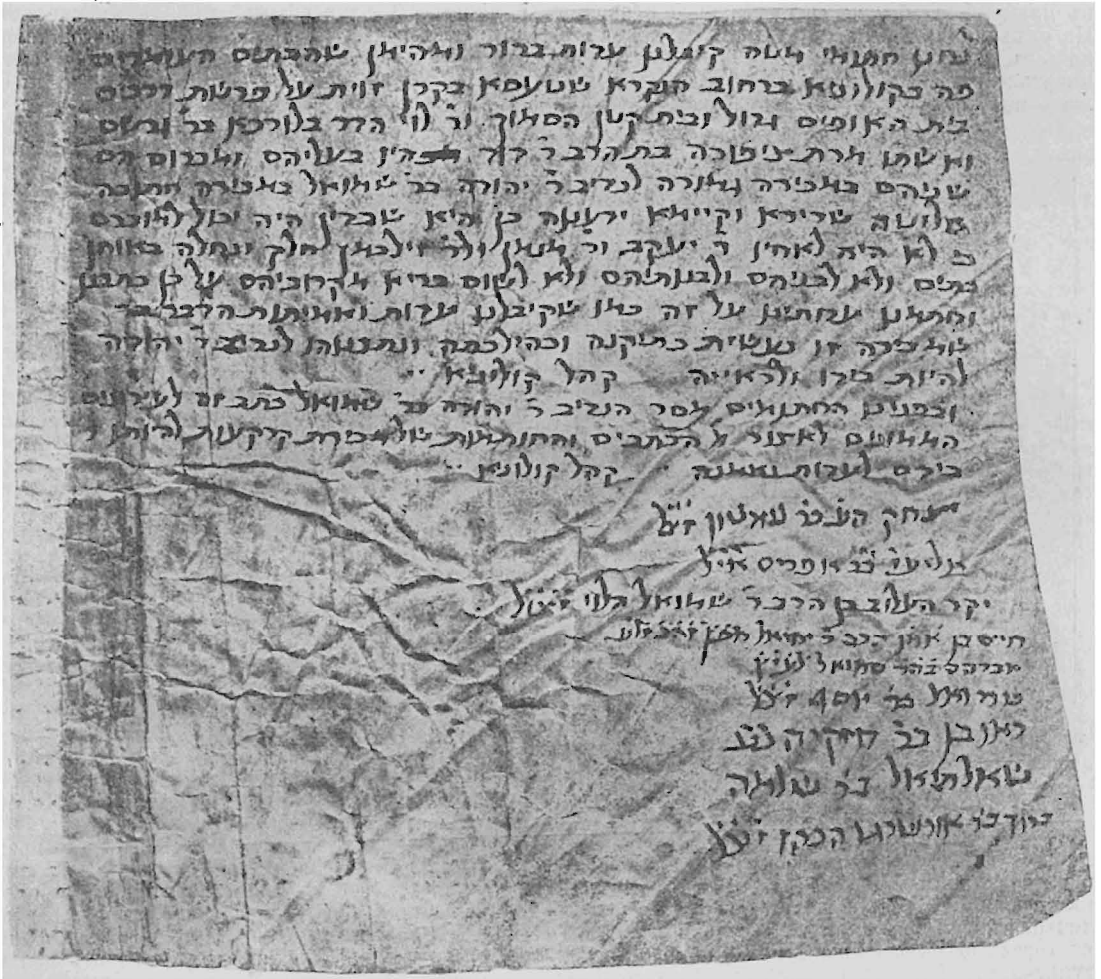 אנחנו חתומי מטה קיבלנו עדות ברור ומהימן שהבתים העומדים
פה בקולוניא ברחוב הנקרא שטעסא בקרן זוית על פרשת דרכים
בית האופים גדול ובית קטן הסמוך ור' לוי הדר בלורכא בר' גרשם
ואשתו מרת ציפורה בת הרב ר' דוד היו בעליהם ומכרום הם
שניהם במכירה גמורה לנדיב ר' יהודה בר' שמואל במכירה חתוכה
חלוטה שרירא וקיימא ידענוה כן היא שבדין היה יכול למוכרם
כי לא היה לאחיו ר' יעקב ור' מנמן ולר' זילכמן חלק ונחלה באותן
בתים ולא לבניהם ולבנותיהם ולא לשום בריא מקרוביהם על כן כתבנו
וחתמנו עדותינו על זה כמו שקיבלנו עדות ואמיתות הדבר
שמכירה זו נעשית כתיקנה וכהילכתה ונתננוהו לנדיב ר' יהודה
להיות בידו ולראייה קהל קולוניא
ובפנינו החתומים מסר הנדיב ר' יהודה בר' שמואל כתב זה לעירונים
הממונים לאצור כל הכתבים והחותמות של מכירת קרקעות להיותו
בידם לעדות נאמנה קהל קולוניא
יצחק בר' שמשון זצ"ל
אליעזר בר' אפרים
יקר העלוב בן הרב ר' שמואל הלוי זצ"ל
חיים בן הרב ר' יחיאל
אברהם בהר' שמואל
בר' יוסף זצ"ל
ראובן בר' חזקיה
שאלתיאל בר' שלמה
ברוך בר' אורשרגו הכהן זצ"ל